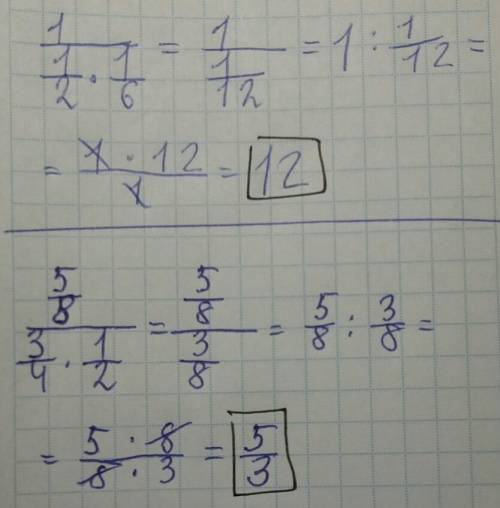 1/(1/2 · 1/6) = 1/(1/12) = 1 : 1/12 =
= (1 · 12)/1 = 12
(5/8)/(3/4 · 1/2) = (5/8)/(3/8) = 5/8 : 3/8 =
= (5 · 8)/(8 · 3) = 5/3